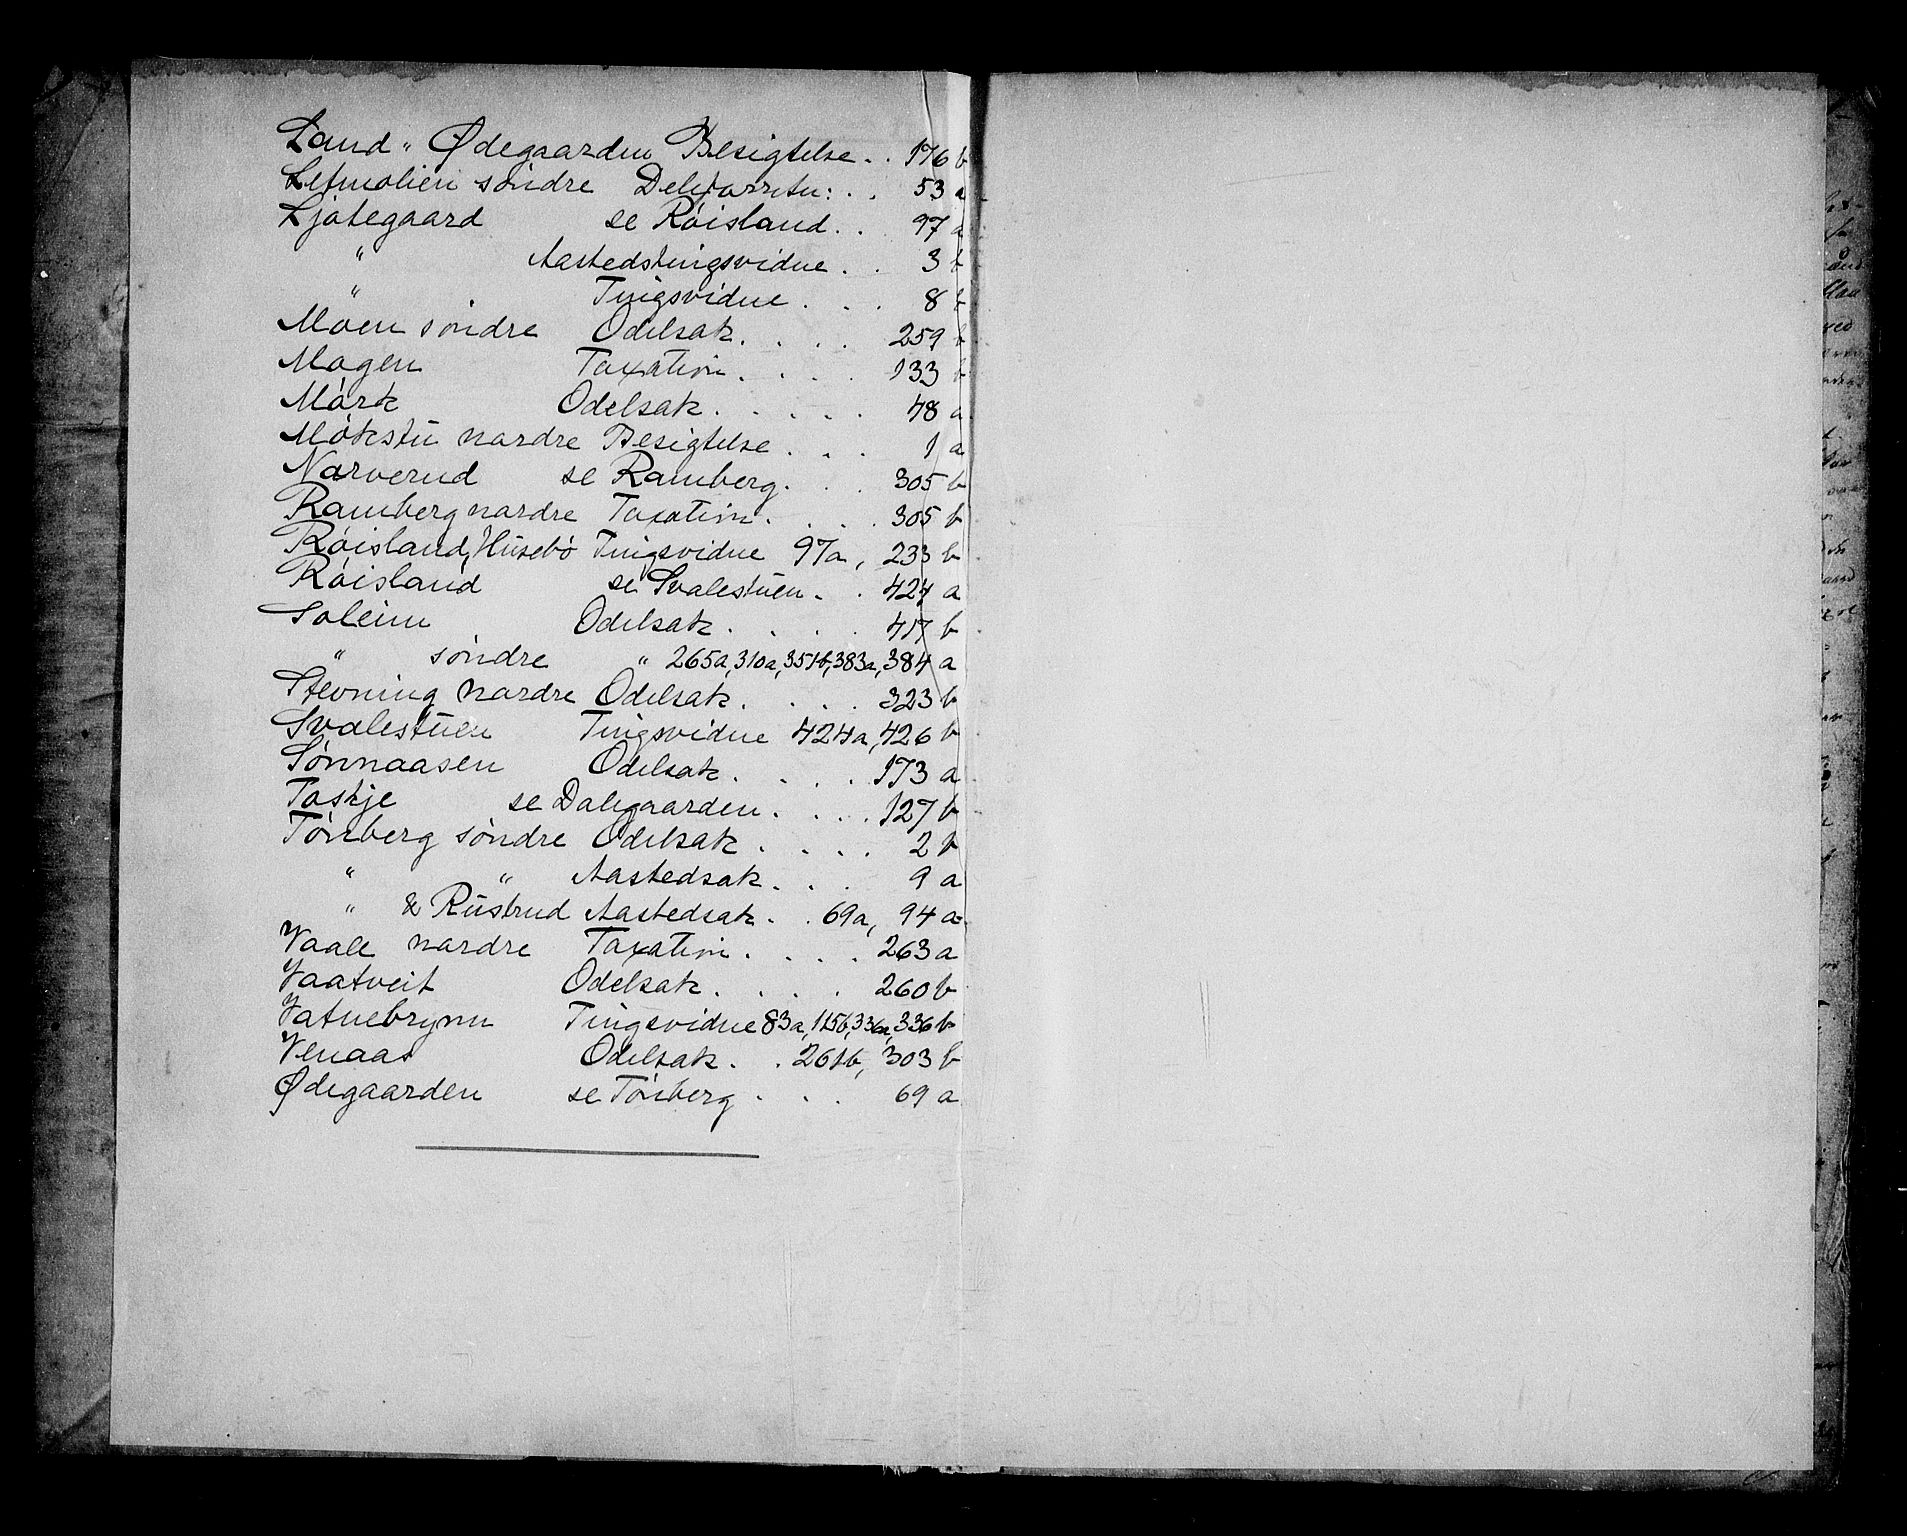 Land „ Ødegaarden Besigtelse . . 176 b
Letmolien söndre . . 53 a
Ljotegaard se Røisland . . 97 a
„ Aastedstingsvidne . . 3 b
„ Tingsvidne . . . 8 b
Moen söndre Odelsak . . . . 259 b
Mogen Taxation . . . . 133 b
Mörk Odelsak . . . . . 48 a
Mökstu nordre Besigtelse . . . 1 a
Norverud se Ramberg . . . 305 b
Ramberg nordre Taxation . . . . 305 b
Røisland, Husebö Tingsvidne 97a, 233 b
Røisland se Svalestuen . . 424 a
Soleim Odelsak . . . . 417 b
„ söndre „ 265a, 310a, 351b, 383a, 384 a
Stevning nordre Odelsak . . . . 323 b
Svalestuen Tingsvidne 424a, 426 b
Sønnaasen Odelsak . . . . 173 a
Taskje se Dalegaarden . . . . 127 b
Tönberg söndre Odelsak . . . . 2 b
„ „ Aastedsak . . . 9 a
„ & Rustrud Aastedsak . . 69a, 94 a
Vaale nordre Taxation . . . . 263 a
Vaatveit Odelsak . . . . 260 b
Vatnebrynn Tingsvidne 83a, 115b, 336a, 336 b
Venaas Odelsak . . 261b, 303 b
Ødegaarden se Tönberg . . . 69 a